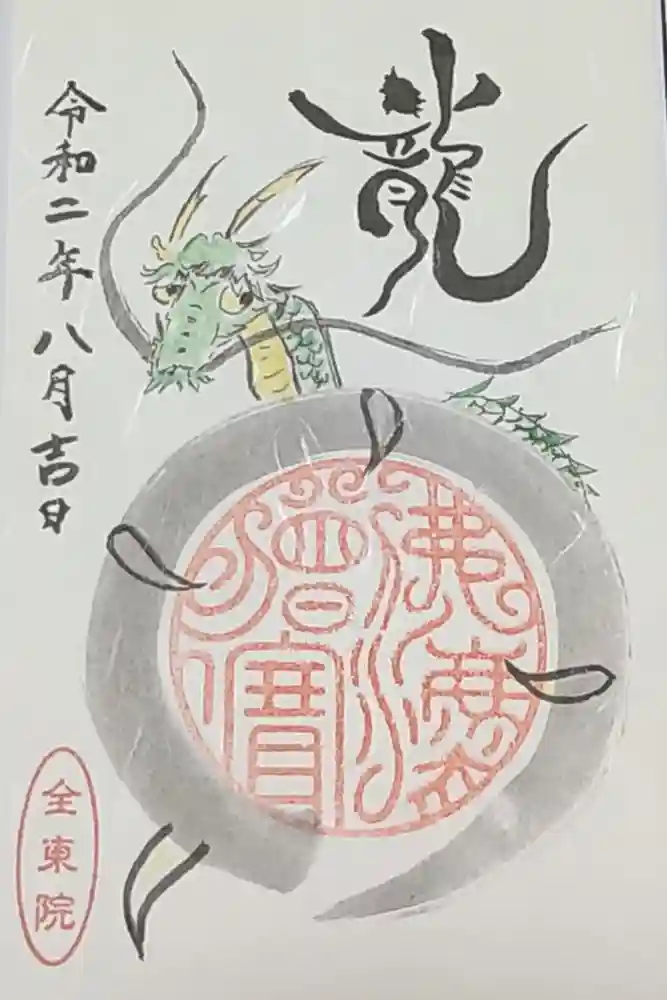 龍
佛法
僧寶
令和二年八月吉日
全東院